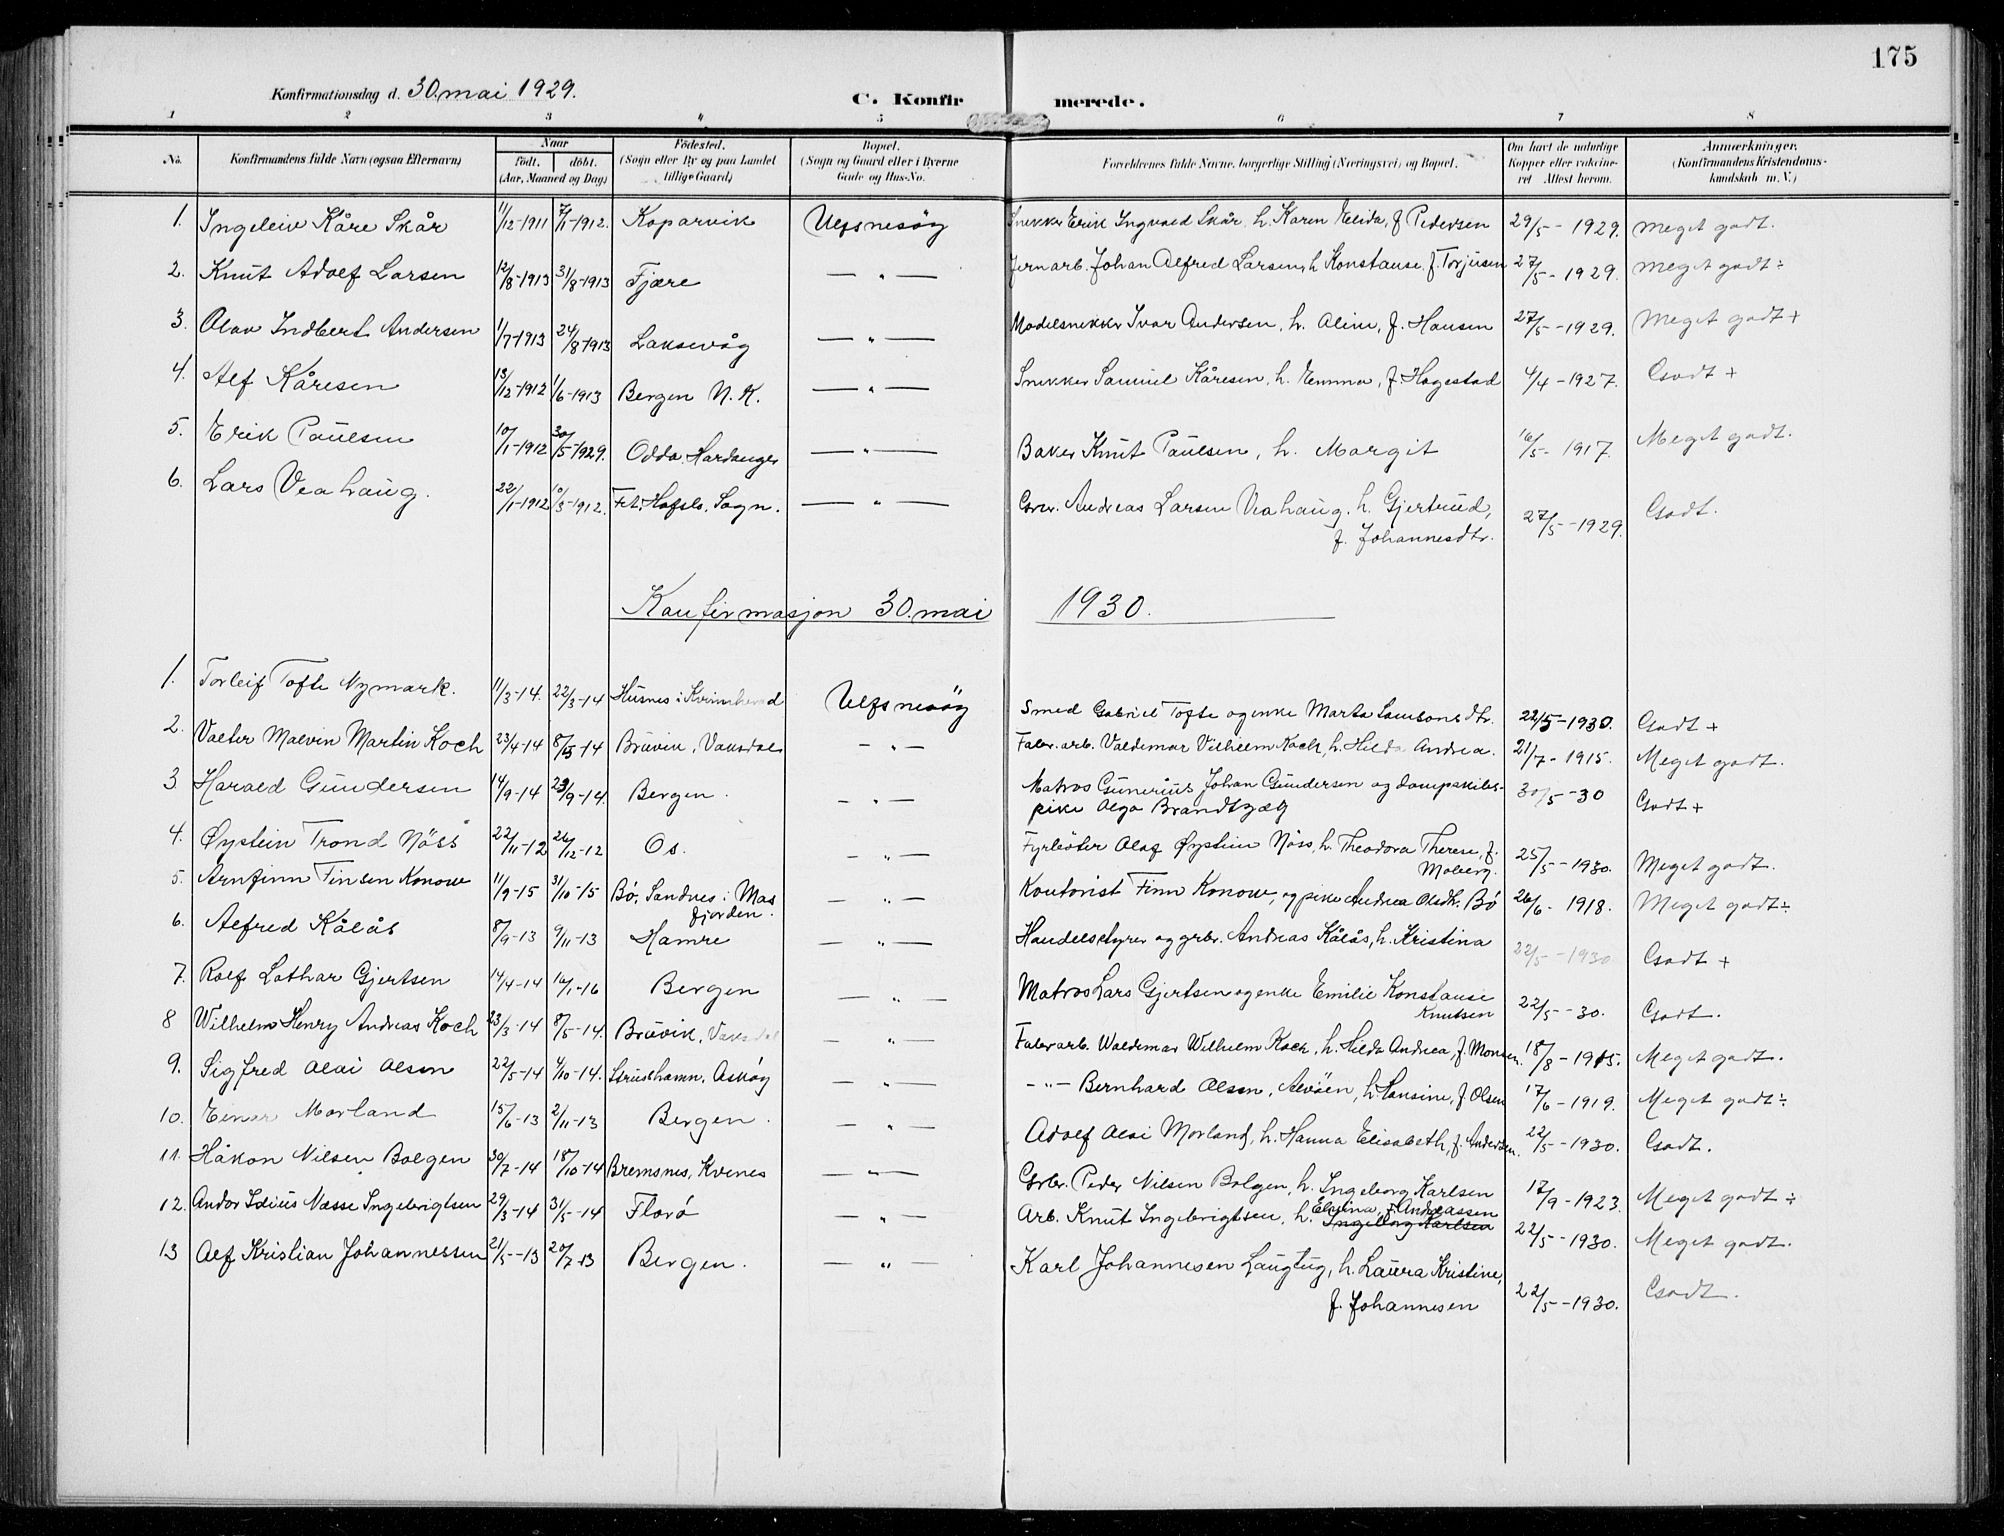 175
Konfirmationsdag d. 30. mai 1929.
C. Konfirmerede.
1 2 3 4 5 6 7 8
No. Konfirmandens fulde Navn (ogsaa Efternavn) Naar födt. döbt. (Aar, Maaned og Dag) Födested. (Sogn eller By og paa Landet tillige Gaard) Bopæl. (Sogn og Gaard eller i Byerne Gade og Hus-No. Forældrenes fulde Navne, borgerlige Stilling (Næringsvei) og Bopæl. Om havt de naturlige Kopper eller vaccineret Attest herom. Anmærkninger. (Konfirmandens Kristendomskundskab m. V.)
1. Ingeleiv Kåre Skår 11/12-1911 7/1-1912. Koparvik Ulfsnesøy Snekker Erik Ingvald Skår, h. Karen Elida, f. Pedersen 29/5-1929. Meget godt.
2. Knut Adolf Larsen 12/8-1913 31/8-1913 Fjære — " — Jernarb. Johan Alfred Larsen, h. Konstanse, f. Torjusen 27/5-1929. Meget godt ÷
3. Olav Indbert Andersen 1/7-1913 24/8-1913 Laksevåg — " — Modelsnekker Ivar Andersen, h. Aline, f. Hansen 27/5-1929. Meget godt +
4. Alf Kåresen 13/12-1912 1/6-1913 Bergen N. K. — " — Snekker Samuel Kåresen, h. Emma, f. Hogestad 4/4-1927. Godt +
5. Erik Paulsen 10/1-1912 30/5-1929. Odda, Hardanger — " — Baker Knut Paulsen, h. Margit 16/5-1917. Meget godt.
6. Lars Veahaug. 22/1-1912 10/3-1912. Hafslo, Sogn. — " — Andreas Larsen Veahaug, h. Gjertrud, f. Johannesdtr. 27/5-1929. Godt.
Konfirmasjon 30. mai 1930.
1. Torleif Tofte Nymark. 11/3-14. 22/3-14 Husnes i Kvinnherad Ulfsnesøy Smed Gabriel Tofte og enke Marta Samsonsdtr. 22/5-1930. Godt +
2. Valter Malvin Martin Koch 23/4-14 8/5-14 Bruvik, Vaksdal — " — Fabr. arb. Valdemar Vilhelm Koch, h. Hilda Andrea. 21/7-1915. Meget godt.
3 Harald Gundersen 14/9-14 29/9-14. Bergen. — " — Matros Gunerius Johan Gundersen og dampskibs-
pike Olga Brandtzæg 30/5-30 Godt +
4. Øystein Trond Nöss 22/11-12 26/12-12 Os. — " — Fyrböter Olaf Øystein Nöss, h. Theodora Therese, f. Moberg. 25/5-1930. Meget godt.
5. Arnfinn Finsen Konow 11/9-15 31/10-15 Bö, Sandnes i Masfjorden. — " — Kontorist Finn Konow, og pike Andrea Olsdtr. Bö 26/6-1918. Meget godt ÷
6. Alfred Kålås 8/9-13 9/11-13 Hamre — " — Handelsstyrer og grbr. Andreas Kålås, h. Kristina 22/5-1930 Godt +
7. Rolf Lothar Gjertsen 14/4-14 16/1-16 Bergen — " — Matros Lars Gjertsen og enke Emilie Konstanse Knutsen 22/5-30. Godt.
8 Wilhelm Henry Andreas Koch 23/3-14 8/5-14. Bruvik, Vaksdal — " — Fabr arb. Waldemar Wilhelm Koch, h. Hilda Andrea, f. Monsen. 18/8-1915. Meget godt.
9. Sigfred Olai Olsen 22/5-14 4/10-14. Strushamn, Asköy — " — — " — Bernhard Olsen, Alvöen, h. Hansine, f. Olsen 17/6-1919. Meget godt ÷
10. Einar Morland 15/6-13 2/11-13 Bergen. — " — Adolf Olai Morland, h. Hanna Elisabeth, f. Andersen. 22/5-1930. Godt.
11. Håkon Nilsen Bolgen 30/7-14 18/10-14 Bremsnes, Kvenes — " — Grbr. Peder Nilsen Bolgen, h. Ingeborg Karlsen 17/9-1923. Meget godt ÷
12. Andor Næsse Ingebrigtsen 29/3-14 31/5-14 Florö — " — Arb. Knut Ingebrigtsen, h. Elvina, f. Andreassen Ingeborg Karlsen 22/5-1930. Meget godt.
13 Alf Kristian Johannessen 21/5-13 20/7-13 Bergen. — " — Karl Johannesen Laugtug, h. Laura Kristine, f. Johannesen 22/5-1930. Godt.